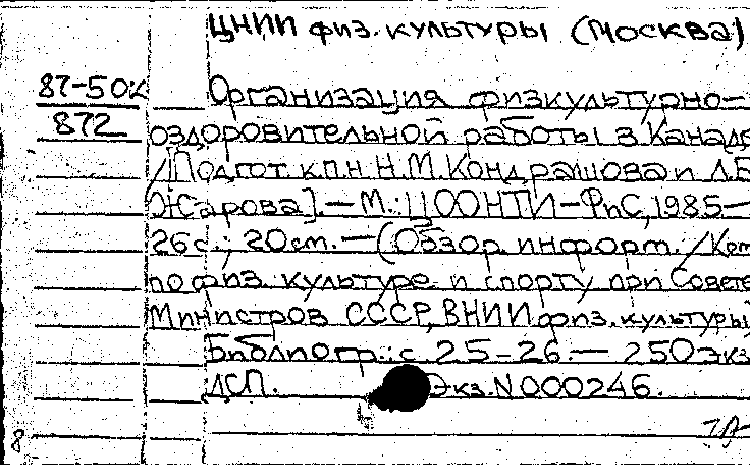 ЦНИИ физ. культуры (Москва)
87-50
872
Организация физкультурно-
оздоровительной работы в Канаде
/[Подгот. к.п.н. Н.М. Кондрашова и Л.Б.
Жарова].—М.: ЦООНТИ-ФиС, 1985.—
26с.; 20см.—(Обзор. информ. / Ком.
по физ. культуре и спорту при Совете
Министров СССР, ВНИИ физ. культуры
Библиогр.: с. 25-26.— 250экз
ДСП. Экз.N000246.
8